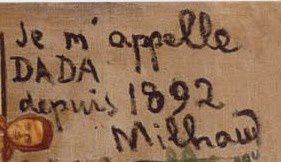 Je m'appelle
DADA
depuis 1892
Milhaud